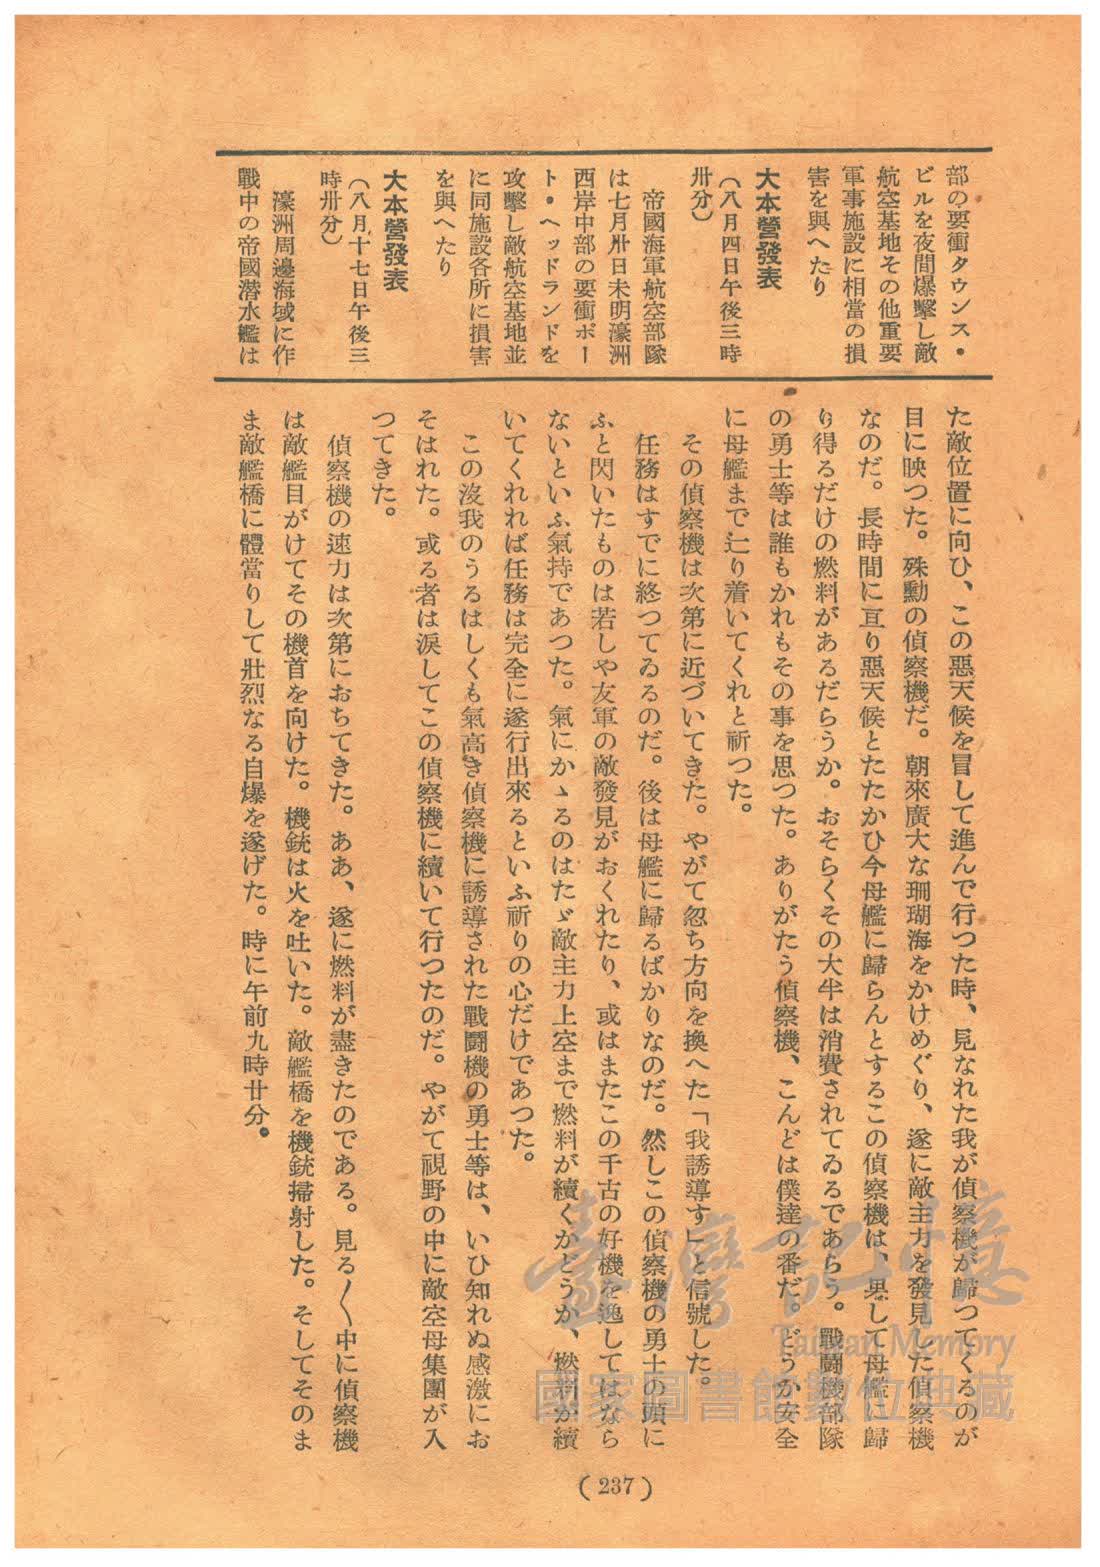 部の要衝タウンス・
ビルを夜間爆擊し敵
航空基地その他重要
軍事施設に相當の損
害を與へたり
大本營發表
（八月四日午後三時
卅分）
帝國海軍航空部隊
は七月卅日未明濠洲
西岸中部の要衝ポー
ト・ヘッドランドを
攻擊し敵航空基地並
に同施設各所に損害
を與へたり
大本營發表
（八月十七日午後三
時卅分）
濠洲周邊海域に作
戰中の帝國潜水艦は
た敵位置に向ひ、この惡天候を冒して進んで行つた時、見なれた我が偵察機が歸つてくるのが
目に映つた。殊勳の偵察機だ。朝來廣大な珊瑚海をかけめぐり、遂に敵主力を發見した偵察機
なのだ。長時間に亘り惡天候とたたかひ今母艦に歸らんとするこの偵察機は、果して母艦に歸
り得るだけの燃料があるだらうか。おそらくその大半は消費されてゐるであらう。戰鬪機部隊
の勇士等は誰もかれもその事を思つた。ありがたう偵察機、こんどは僕達の番だ。どうか安全
に母艦まで辿り着いてくれと祈つた。
その偵察機は次第に近づいてきた。やがて忽ち方向を換へた「我誘導す」と信號した。
任務はすでに終つてゐるのだ。後は母艦に歸るばかりなのだ。然しこの偵察機の勇士の頭に
ふと閃いたものは若しや友軍の敵發見がおくれたり、或はまたこの千古の好機を逸してはなら
ないといふ氣持であつた。氣にかゝるのはたゞ敵主力上空まで燃料が續くかどうか、燃料が續
いてくれれば任務は完全に遂行出來るといふ祈りの心だけであつた。
この沒我のうるはしくも氣高き偵察機に誘導された戰鬪機の勇士等は、いひ知れぬ感激にお
そはれた。或る者は淚してこの偵察機に續いて行つたのだ。やがて視野の中に敵空母集團が入
つてきた。
偵察機の速力は次第におちてきた。ああ、遂に燃料が盡きたのである。見る〱中に偵察機
は敵艦目がけてその機首を向けた。機銃は火を吐いた。敵艦橋を機銃掃射した。そしてそのま
ま敵艦橋に體當りして壯烈なる自爆を遂げた。時に午前九時廿分。
（237）
臺灣記憶
Taiwan Memory
國家圖書館數位典藏